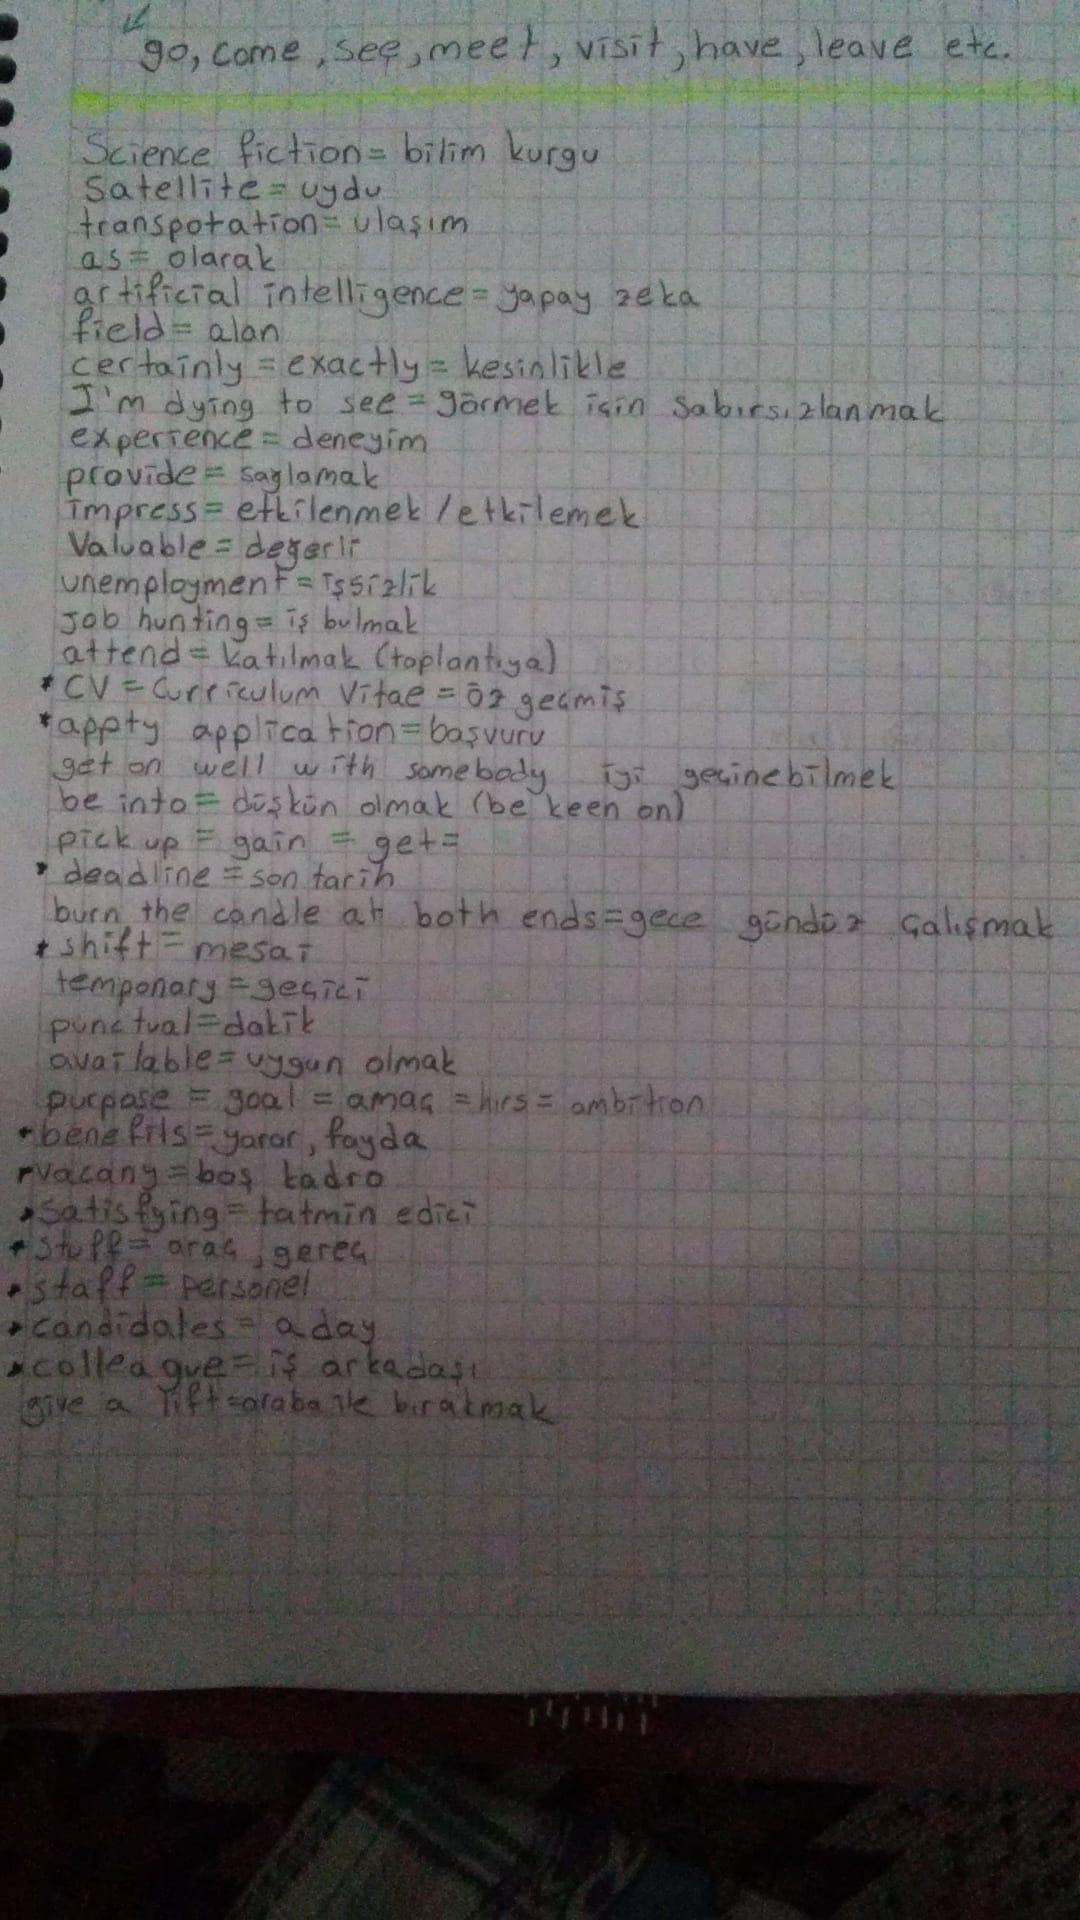 go, come, see, meet, visit, have, leave etc.
Science fiction = bilim kurgu
Satellite = uydu
transpotation = ulaşım
as = olarak
artificial intelligence = yapay zeka
field = alan
certainly = exactly = kesinlikle
I'm dying to see = görmek için sabırsızlanmak
experience = deneyim
provide = sağlamak
impress = etkilenmek / etkilemek
Valuable = değerli
unemployment = işsizlik
Job hunting = iş bulmak
attend = katılmak (toplantıya)
* CV = Curriculum Vitae = öz geçmiş
* appty application = başvuru
get on well with somebody iyi geçinebilmek
be into = düşkün olmak (be keen on)
pick up = gain = get =
* deadline = son tarih
burn the candle at both ends = gece gündüz çalışmak
* shift = mesai
temponary = geçici
punctual = dakik
available = uygun olmak
purpose = goal = amaç = hırs = ambition
* benefits = yarar, fayda
* vacany = boş kadro
* satisfying = tatmin edici
* stuff = araç, gereç
* staff = personel
* candidates = aday
* colleague = iş arkadaşı
give a lift = araba ile bırakmak